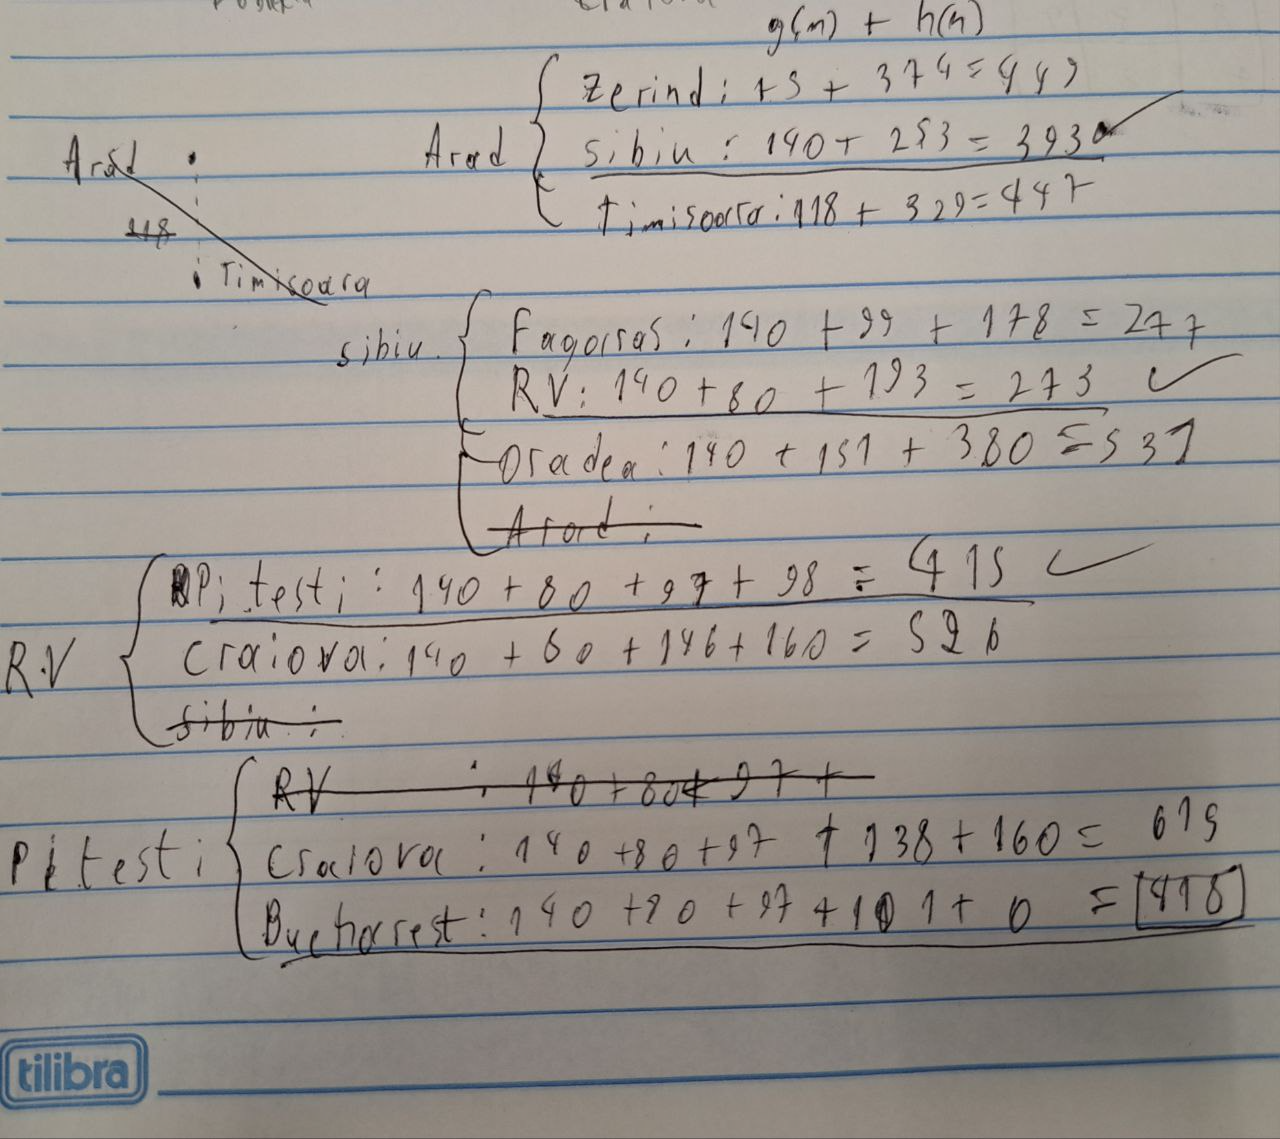 g(n) + h(n)
Zerind: 75 + 374 = 449
Arad
Sibiu: 140 + 253 = 393
Timisoara: 118 + 329 = 447
Arad
118
Timisoara
Sibiu
Fagorras: 140 + 99 + 178 = 277
RV: 140 + 80 + 193 = 273
Oradea: 140 + 151 + 380 = 531
Arad:
RV
Pitesti: 140 + 80 + 97 + 98 = 415
Craiova: 140 + 80 + 146 + 160 = 526
Sibiu:
Pitesti
RV : 140 + 80 + 97 +
Craiova: 140 + 80 + 97 + 138 + 160 = 615
Bucharrest: 140 + 80 + 97 + 101 + 0 = 418
tilibra